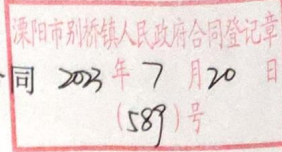 溧阳市别桥镇人民政府合同登记章
同 2023 年 7 月 20 日
(589) 号